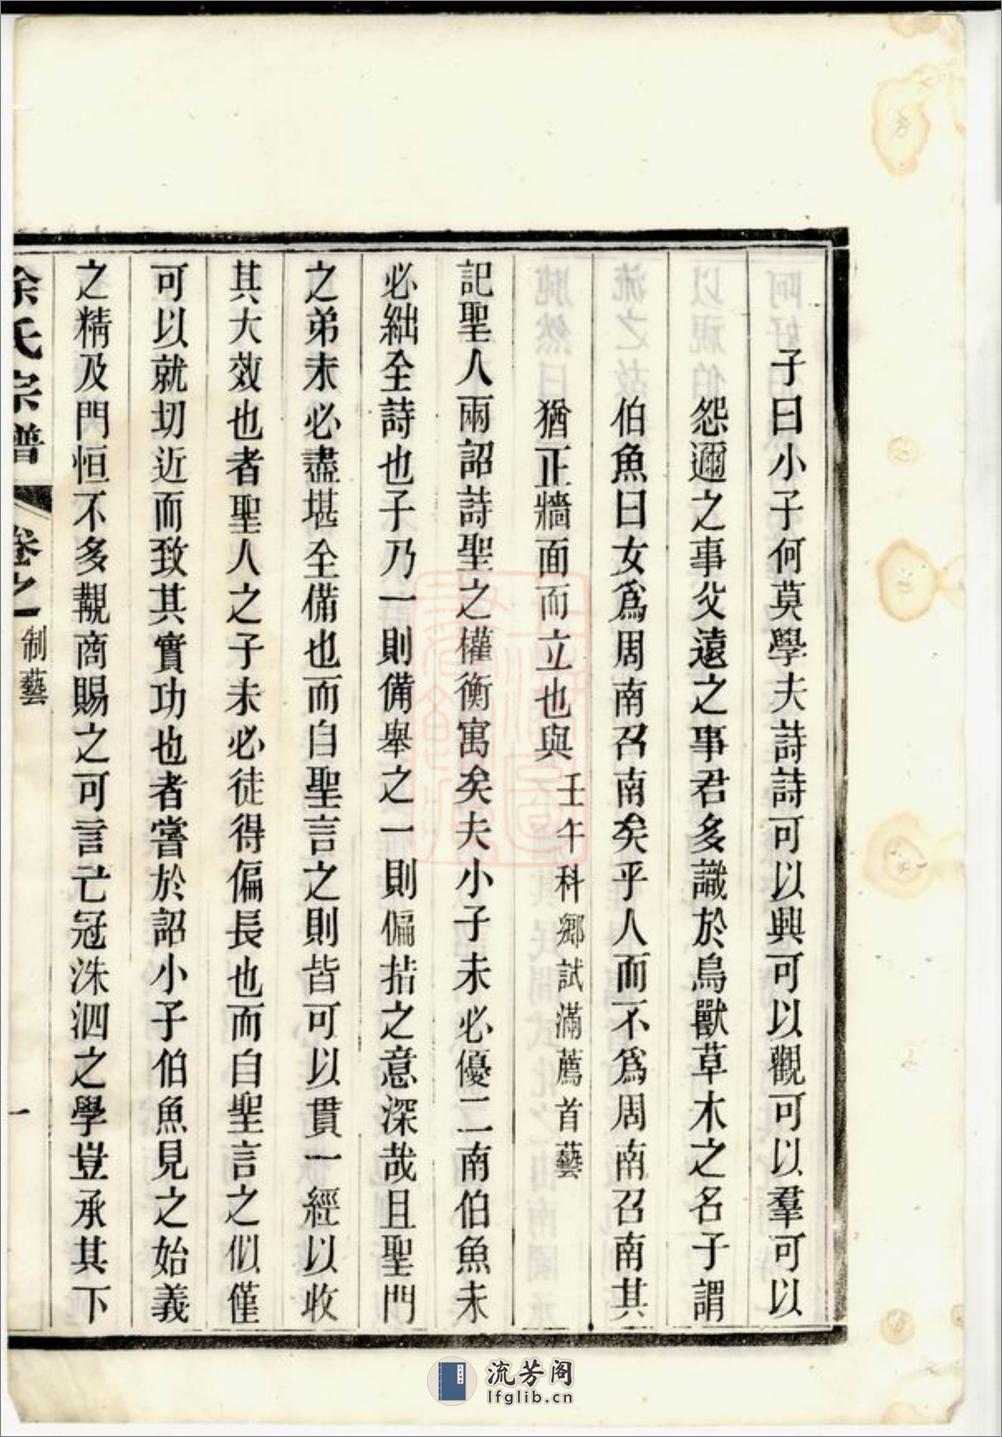 子曰小子何莫學夫詩詩可以興可以觀可以羣可以
怨邇之事父遠之事君多識於鳥獸草木之名子謂
伯魚曰女爲周南召南矣乎人而不爲周南召南其
猶正牆面而立也與 壬午科鄉試滿薦首藝
記聖人兩詔詩聖之權衡寓矣夫小子未必優二南伯魚未
必絀全詩也子乃一則備舉之一則偏拈之意深哉且聖門
之弟未必盡堪全備也而自聖言之則皆可以貫一經以收
其大效也者聖人之子未必徒得偏長也而自聖言之似僅
可以就切近而致其實功也者嘗於詔小子伯魚見之始義
之精及門恒不多觀商賜之可言亡冠洙泗之學豈承其下
余氏宗譜 卷之 制藝 一
流芳阁
lfglib.cn